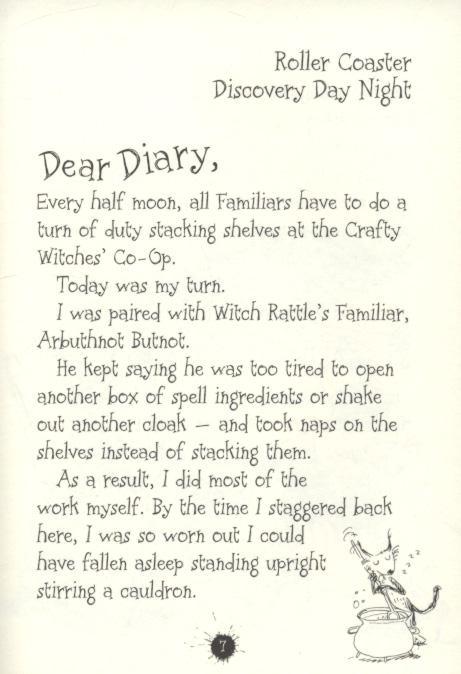 Roller Coaster
Discovery Day Night
Dear Diary,
Every half moon, all Familiars have to do a
turn of duty stacking shelves at the Crafty
Witches' Co-Op.
Today was my turn.
I was paired with Witch Rattle's Familiar,
Arbuthnot Butnot.
He kept saying he was too tired to open
another box of spell ingredients or shake
out another cloak – and took naps on the
shelves instead of stacking them.
As a result, I did most of the
work myself. By the time I staggered back
here, I was so worn out I could
have fallen asleep standing upright
stirring a cauldron.
z z z z
7